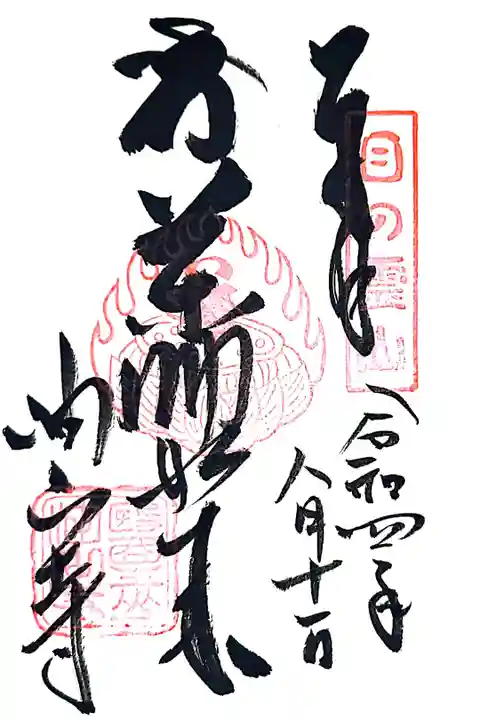 奉拝
目の霊山
令和四年
八月十一日
薬師如来
油山寺